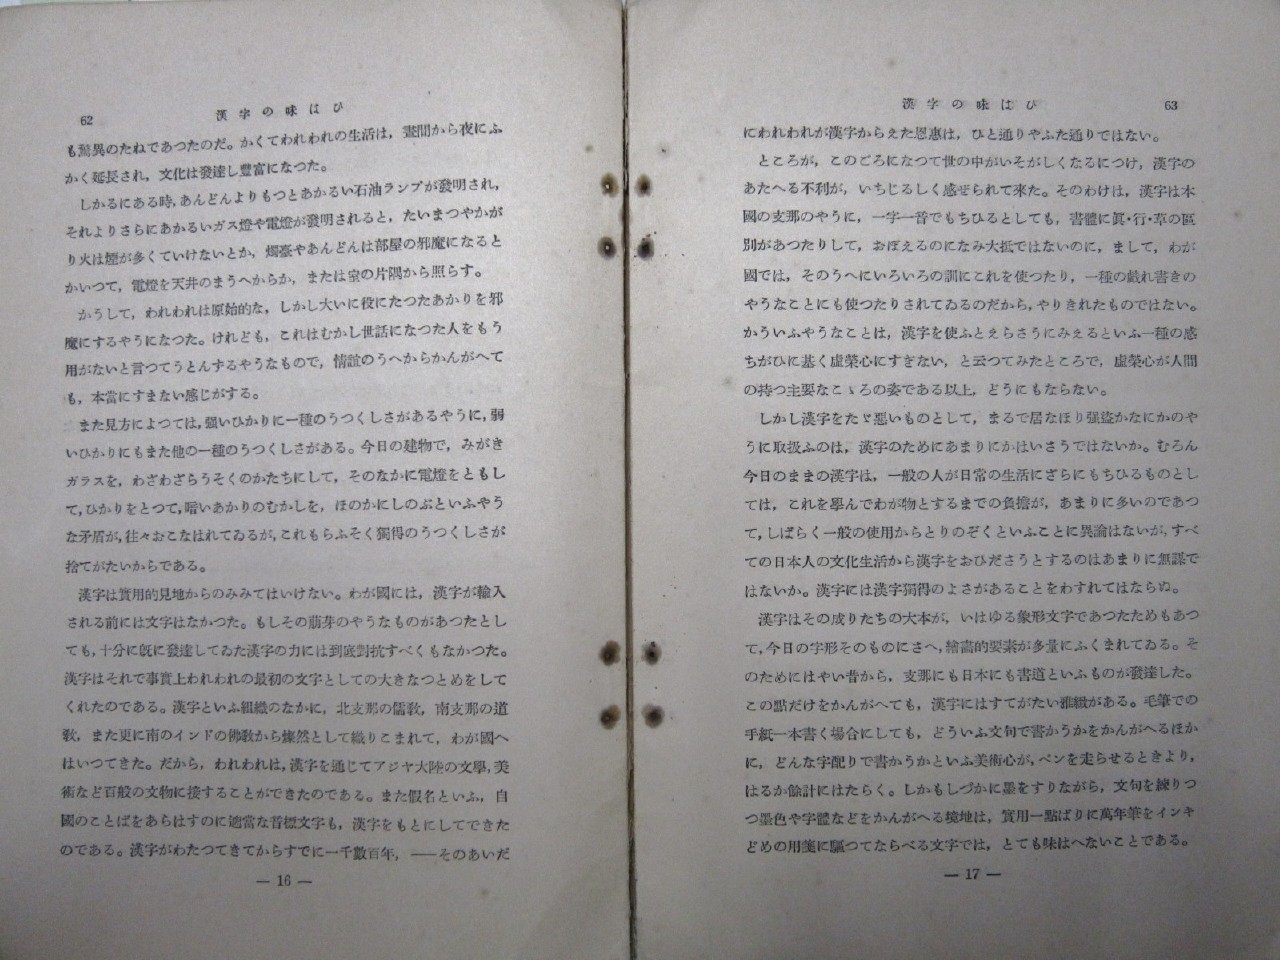 62
漢字の味はひ
も驚異のたねであつたのだ。かくてわれわれの生活は，晝間から夜にふ
かく延長され，文化は發達し豐富になつた。
しかるにある時，あんどんよりもつとあかるい石油ランプが發明され，
それよりさらにあかるいガス燈や電燈が發明されると，たいまつやかが
り火は煙が多くていけないとか，燭臺やあんどんは部屋の邪魔になると
かいつて，電燈を天井のまうへからか，または室の片隅から照らす。
かうして，われわれは原始的な，しかし大いに役にたつたあかりを邪
魔にするやうになつた。けれども，これはむかし世話になつた人をもう
用がないと言つてうとんするやうなもので，情誼のうへからかんがへて
も，本當にすまない感じがする。
また見方によつては，强いひかりに一種のうつくしさがあるやうに，弱
いひかりにもまた他の一種のうつくしさがある。今日の建物で，みがき
ガラスを，わざわざらうそくのかたちにして，そのなかに電燈をともし
て，ひかりをとつて，暗いあかりのむかしを，ほのかにしのぶといふやう
な矛盾が，往々おこなはれてゐるが，これもらふそく獨得のうつくしさが
捨てがたいからである。
漢字は實用的見地からのみみてはいけない。わが國には，漢字が輸入
される前には文字はなかつた。もしその萠芽のやうなものがあつたとし
ても，十分に旣に發達してゐた漢字の力には到底對抗すべくもなかつた。
漢字はそれで事實上われわれの最初の文字としての大きなつとめをして
くれたのである。漢字といふ組織のなかに，北支那の儒敎，南支那の道
敎，また更に南のインドの佛敎から燦然として織りこまれて，わが國へ
はいつてきた。だから，われわれは，漢字を通じてアジヤ大陸の文學，美
術など百般の文物に接することができたのである。また假名といふ，自
國のことばをあらはすのに適當な音標文字も，漢字をもとにしてできた
のである。漢字がわたつてきてからすでに一千數百年，——そのあいだ
— 16 —
漢字の味はひ
63
にわれわれが漢字からえた恩惠は，ひと通りやふた通りではない。
ところが，このごろになつて世の中がいそがしくなるにつけ，漢字の
あたへる不利が，いちじるしく感ぜられて來た。そのわけは，漢字は本
國の支那のやうに，一字一音でもちひるとしても，書體に眞・行・草の區
別があつたりして，おぼえるのになみ大抵ではないのに，まして，わが
國では，そのうへにいろいろの訓にこれを使つたり，一種の戱れ書きの
やうなことにも使つたりされてゐるのだから，やりきれたものではない。
かういふやうなことは，漢字を使ふとえらさうにみえるといふ一種の感
ちがひに基く虛榮心にすぎない，と云つてみたところで，虛榮心が人間
の持つ主要なこゝろの姿である以上，どうにもならない。
しかし漢字をたゞ惡いものとして，まるで居なほり强盜かなにかのや
うに取扱ふのは，漢字のためにあまりにかはいさうではないか。むろん
今日のままの漢字は，一般の人が日常の生活にざらにもちひるものとし
ては，これを學んでわが物とするまでの負擔が，あまりに多いのであつ
て，しばらく一般の使用からとりのぞくといふことに異論はないが，すべ
ての日本人の文化生活から漢字をおひださうとするのはあまりに無謀で
はないか。漢字には漢字獨得のよさがあることをわすれてはならぬ。
漢字はその成りたちの大本が，いはゆる象形文字であつたためもあつ
て，今日の字形そのものにさへ，繪畫的要素が多量にふくまれてゐる。そ
のためにはやい昔から，支那にも日本にも書道といふものが發達した。
この點だけをかんがへても，漢字にはすてがたい雅緻がある。毛筆での
手紙一本書く場合にしても，どういふ文句で書かうかをかんがへるほか
に，どんな字配りで書かうかといふ美術心が，ペンを走らせるときより，
はるか餘計にはたらく。しかもしづかに墨をすりながら，文句を練りつ
つ墨色や字體などをかんがへる境地は，實用一點ばりに萬年筆をインキ
どめの用箋に驅つてならべる文字では，とても味はへないことである。
— 17 —